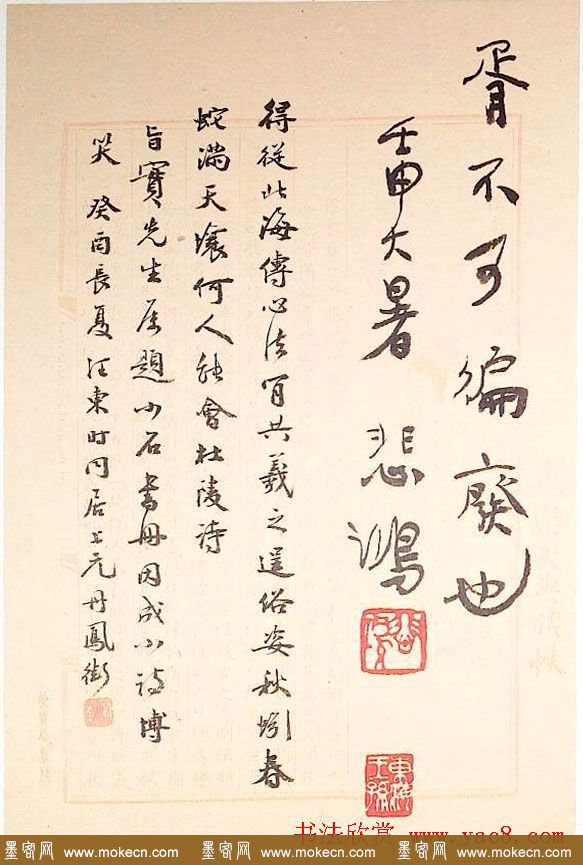 胥不可徧廢也
壬申大暑 悲鴻
東海王孫
得從北海傳心法肎共羲之逞俗姿秋蚓春
蛇滿天壤何人能會杜陵詩
旨寶先生屬題小石書冊因成小詩博
笑 癸酉長夏汪東时同居上元丹鳳街
书法欣赏 www.yac8.com
墨客网 www.mokecn.com 墨客网 www.mokecn.com 墨客网 www.mokecn.com